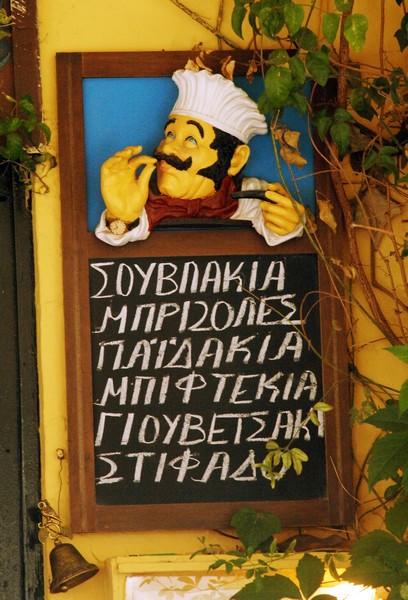 ΣΟΥΒΛΑΚΙΑ
ΜΠΡΙΖΟΛΕΣ
ΠΑΪΔΑΚΙΑ
ΜΠΙΦΤΕΚΙΑ
ΓΙΟΥΒΕΤΣΑΚΙ
ΣΤΙΦΑΔΟ